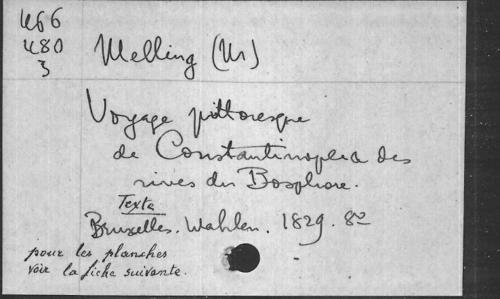 466
480
3
Melling (Mr)
Voyage pittoresque
de Constantinople & des
rives du Bosphore.
Texte
Bruxelles. Wahlen. 1829. 8º
pour les planches
voir la fiche suivante.